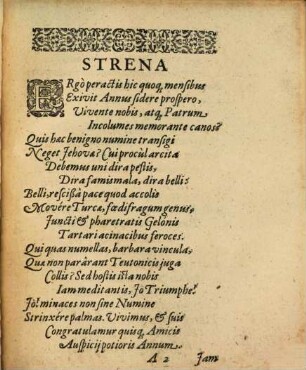 STRENA
ERgò peractis hic quoq, mensibus
Exivit Annus sidere prospero,
Vivente nobis, atq, Patrum
Incolumes memorante canos?
Quis hac benigno numine transigi
Neget Jehovæ? Cui procùl arcita
Debemus uni dira pestis,
Dira famis mala, dira belli:
Belli, rescißâ pace quod accolis
Movêre Turcæ, fœdifragum genus,
Juncti & pharetratis Gelonis
Tartari acinacibus feroces.
Qui quas numellas, barbara vincula,
Quæ non parârant Teutonicis juga
Collis? Sed hostis ista nobis
Iam meditantis, Jo Triumphe!
Jo! minaces non sine Numine
Strinxére palmas. Vivimus, & suis
Congratulamur quisq, Amicis
Auspicij potioris Annum.
A 2 Jam